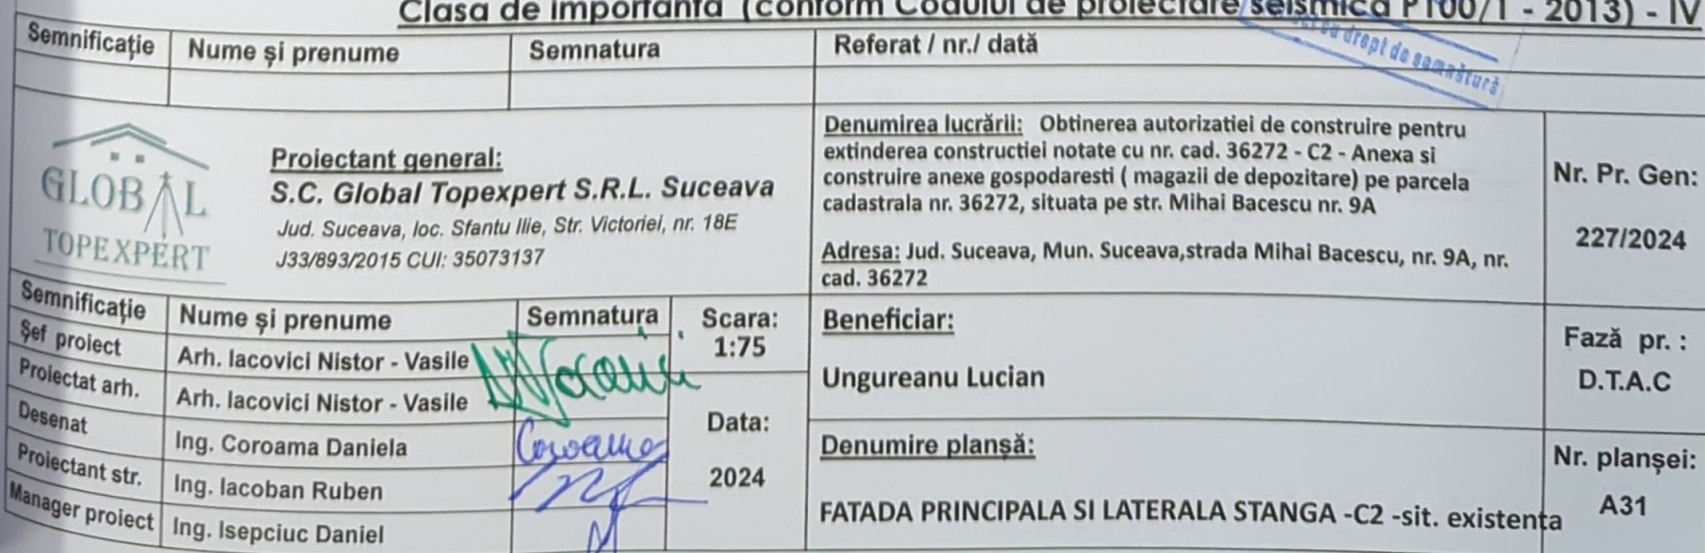 Clasa de importanta (conform Codului de proiectare seismica P100/1 - 2013) - IV
cu drept de semnătură
Semnificație Nume și prenume Semnatura Referat / nr./ dată
GLOBAL
TOPEXPERT
Proiectant general:
S.C. Global Topexpert S.R.L. Suceava
Jud. Suceava, loc. Sfantu Ilie, Str. Victoriei, nr. 18E
J33/893/2015 CUI: 35073137
Denumirea lucrării: Obtinerea autorizatiei de construire pentru
extinderea constructiei notate cu nr. cad. 36272 - C2 - Anexa si
construire anexe gospodaresti ( magazii de depozitare) pe parcela
cadastrala nr. 36272, situata pe str. Mihai Bacescu nr. 9A
Adresa: Jud. Suceava, Mun. Suceava,strada Mihai Bacescu, nr. 9A, nr.
cad. 36272
Nr. Pr. Gen:
227/2024
Semnificație Nume și prenume Semnatura
Șef proiect Arh. Iacovici Nistor - Vasile
Proiectat arh. Arh. Iacovici Nistor - Vasile
Desenat Ing. Coroama Daniela Coroama
Proiectant str. Ing. Iacoban Ruben
Manager proiect Ing. Isepciuc Daniel
Scara:
1:75
Data:
2024
Beneficiar:
Ungureanu Lucian
Fază pr. :
D.T.A.C
Denumire planșă:
FATADA PRINCIPALA SI LATERALA STANGA -C2 -sit. existenta
Nr. planșei:
A31